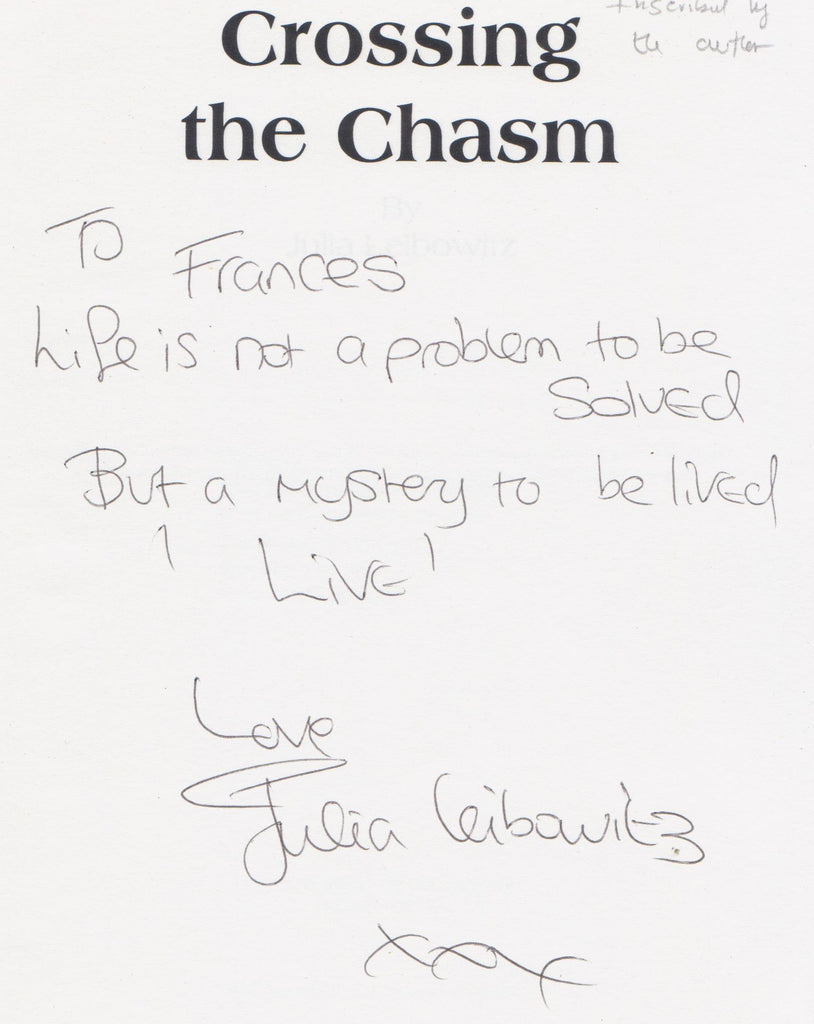 Inscribed by
the author
Crossing
the Chasm
By
Julia Leibowitz
To Frances
Life is not a problem to be
Solved
But a mystery to be lived
Live!
Love
Julia Leibowitz
xxx